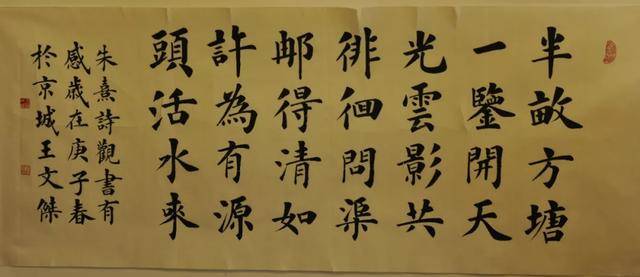 半畝方塘
一鑒開天
光雲影共
徘徊問渠
邮得清如
許為有源
頭活水來
朱熹詩觀書有
感歲在庚子春
於京城王文傑